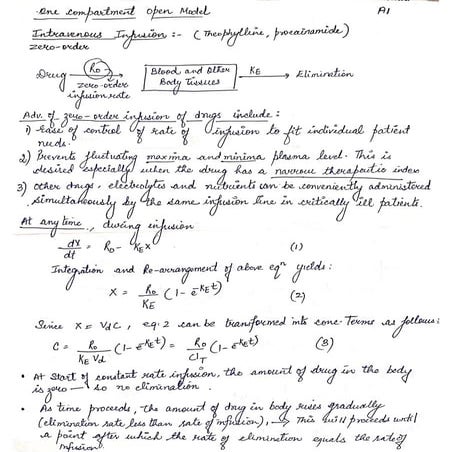 One compartment Open Model
A1
Intravenous Infusion :- (Theophylline, procainamide)
zero-order
Drug R₀ → Blood and Other Body Tissues KE → Elimination
zero-order
infusion rate
Adv. of zero-order infusion of drugs include :
1) Ease of control of rate of infusion to fit individual patient
needs.
2) Prevents fluctuating maxima and minima plasma level. This is
desired especially when the drug has a narrow therapeutic index
3) Other drugs, electrolytes and nutrients can be conveniently administered
simultaneously by the same infusion line in critically ill patients.
At any time, during infusion
dX/dt = R₀ - KE X (1)
Integration and Re-arrangement of above eqⁿ yields :
X = R₀/KE (1 - e^-KEt) (2)
Since X = VdC, eq. 2 can be transformed into conc. Terms as follows:
C = R₀/KE Vd (1 - e^-KEt) = R₀/ClT (1 - e^-KEt) (3)
• At Start of constant rate infusion, the amount of drug in the body
is zero — so no elimination.
• As time proceeds, the amount of drug in body rises gradually
(elimination rate less than rate of infusion), → This will proceeds until
a point after which the rate of elimination equals the rate of
infusion